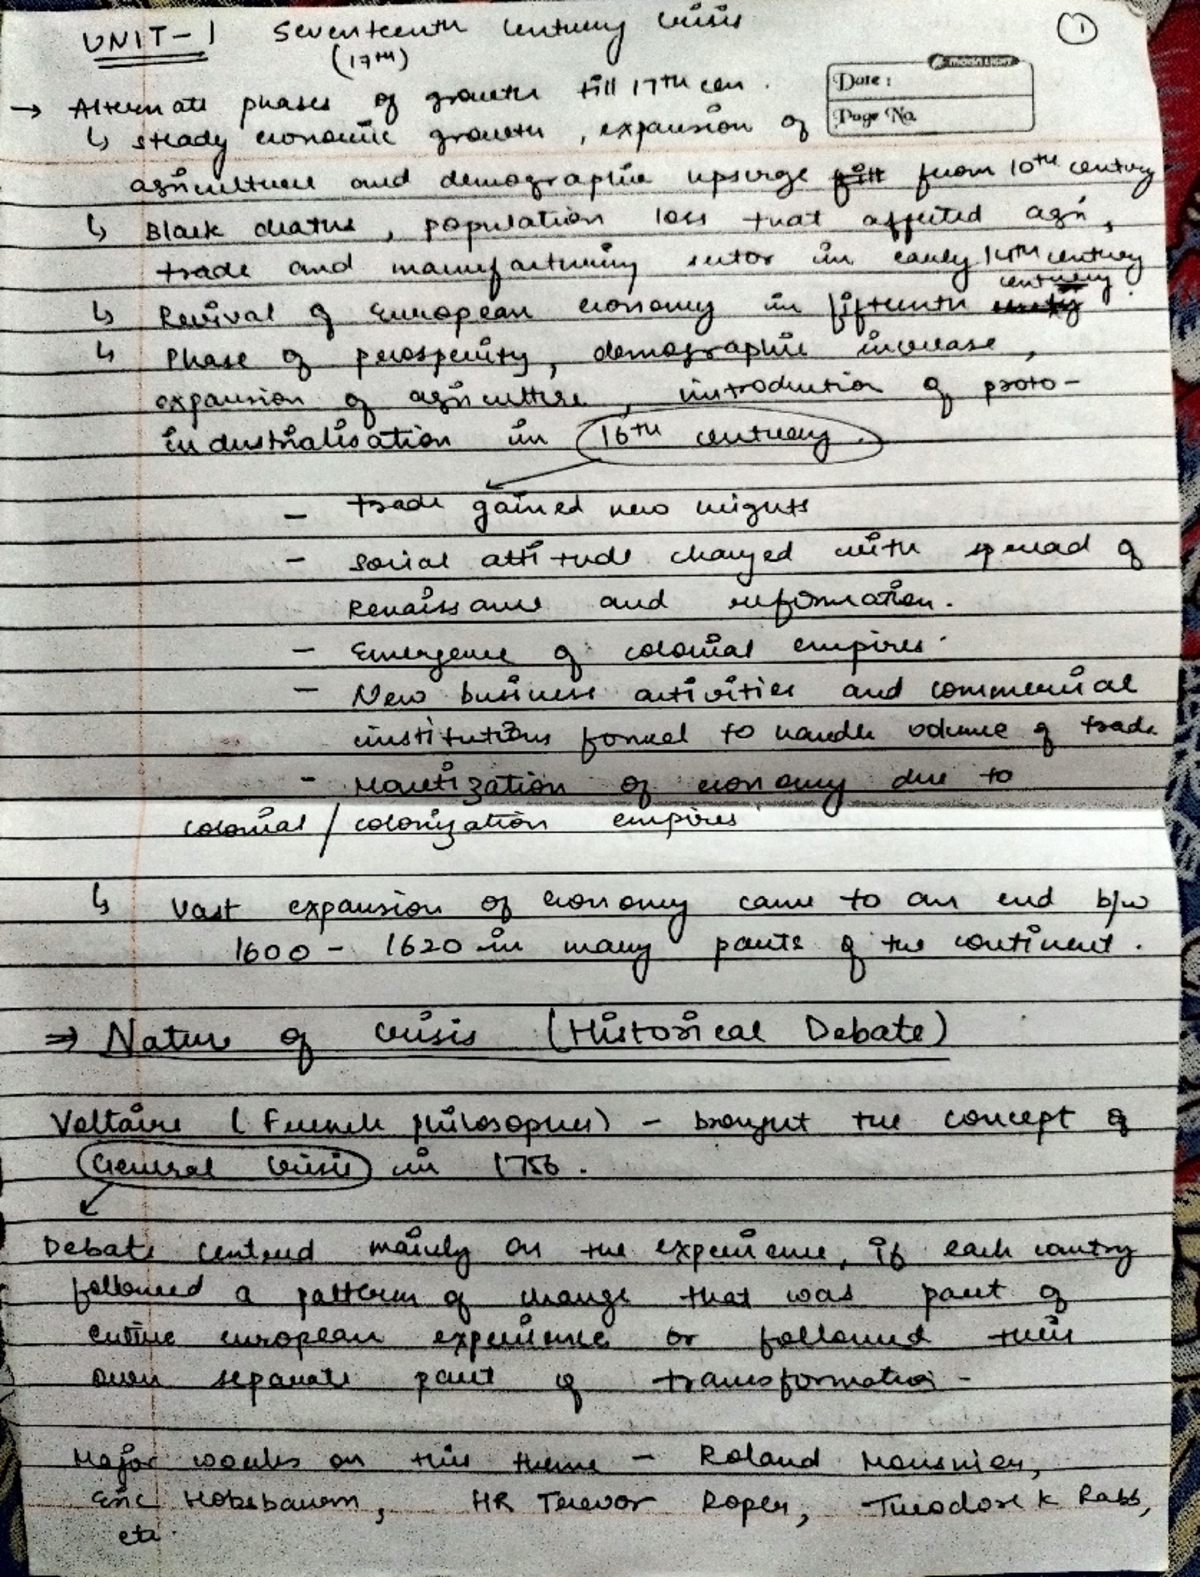 UNIT-1 Seventeenth Century Crisis
(17th)
1
Date :
Page No.
→ Alternate phases of growth till 17th cen.
↳ steady economic growth, expansion of
agriculture and demographic upsurge from 10th century
↳ Black deaths, population loss that affected agri,
trade and manufacturing sector in early 14th century
↳ Revival of European economy in fifteenth century
↳ Phase of prosperity, demographic increase,
expansion of agriculture, introduction of proto-
industrialisation in 16th century.
- trade gained new heights
- social attitude changed with spread of
Renaissance and reformation.
- Emergence of colonial empires.
- New business activities and commercial
institutions formed to handle volume of trade
- Monetization of economy due to
colonial/colonization empires
↳ Vast expansion of economy came to an end b/w
1600 - 1620 in many parts of the continent.
⇒ Nature of crisis (Historical Debate)
Voltaire (French philosopher) - brought the concept of
General Crisis in 1756.
Debate centred mainly on the experience, if each country
followed a pattern of change that was part of
entire european experience or followed their
own separate part of transformation -
Major works on this theme - Roland Mousnier,
Eric Hobsbawm, HR Trevor Roper, Theodore K Rabb,
etc.